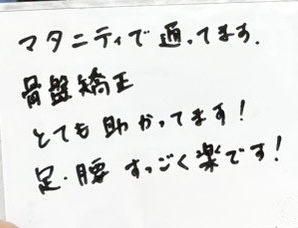 マタニティで通ってます.
骨盤矯正
とても助かってます!
足・腰 すっごく楽です!